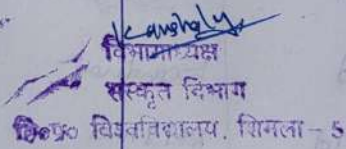 Kaushalya
विभागाध्यक्ष
संस्कृत विभाग
हि०प्र० विश्वविद्यालय, शिमला - 5